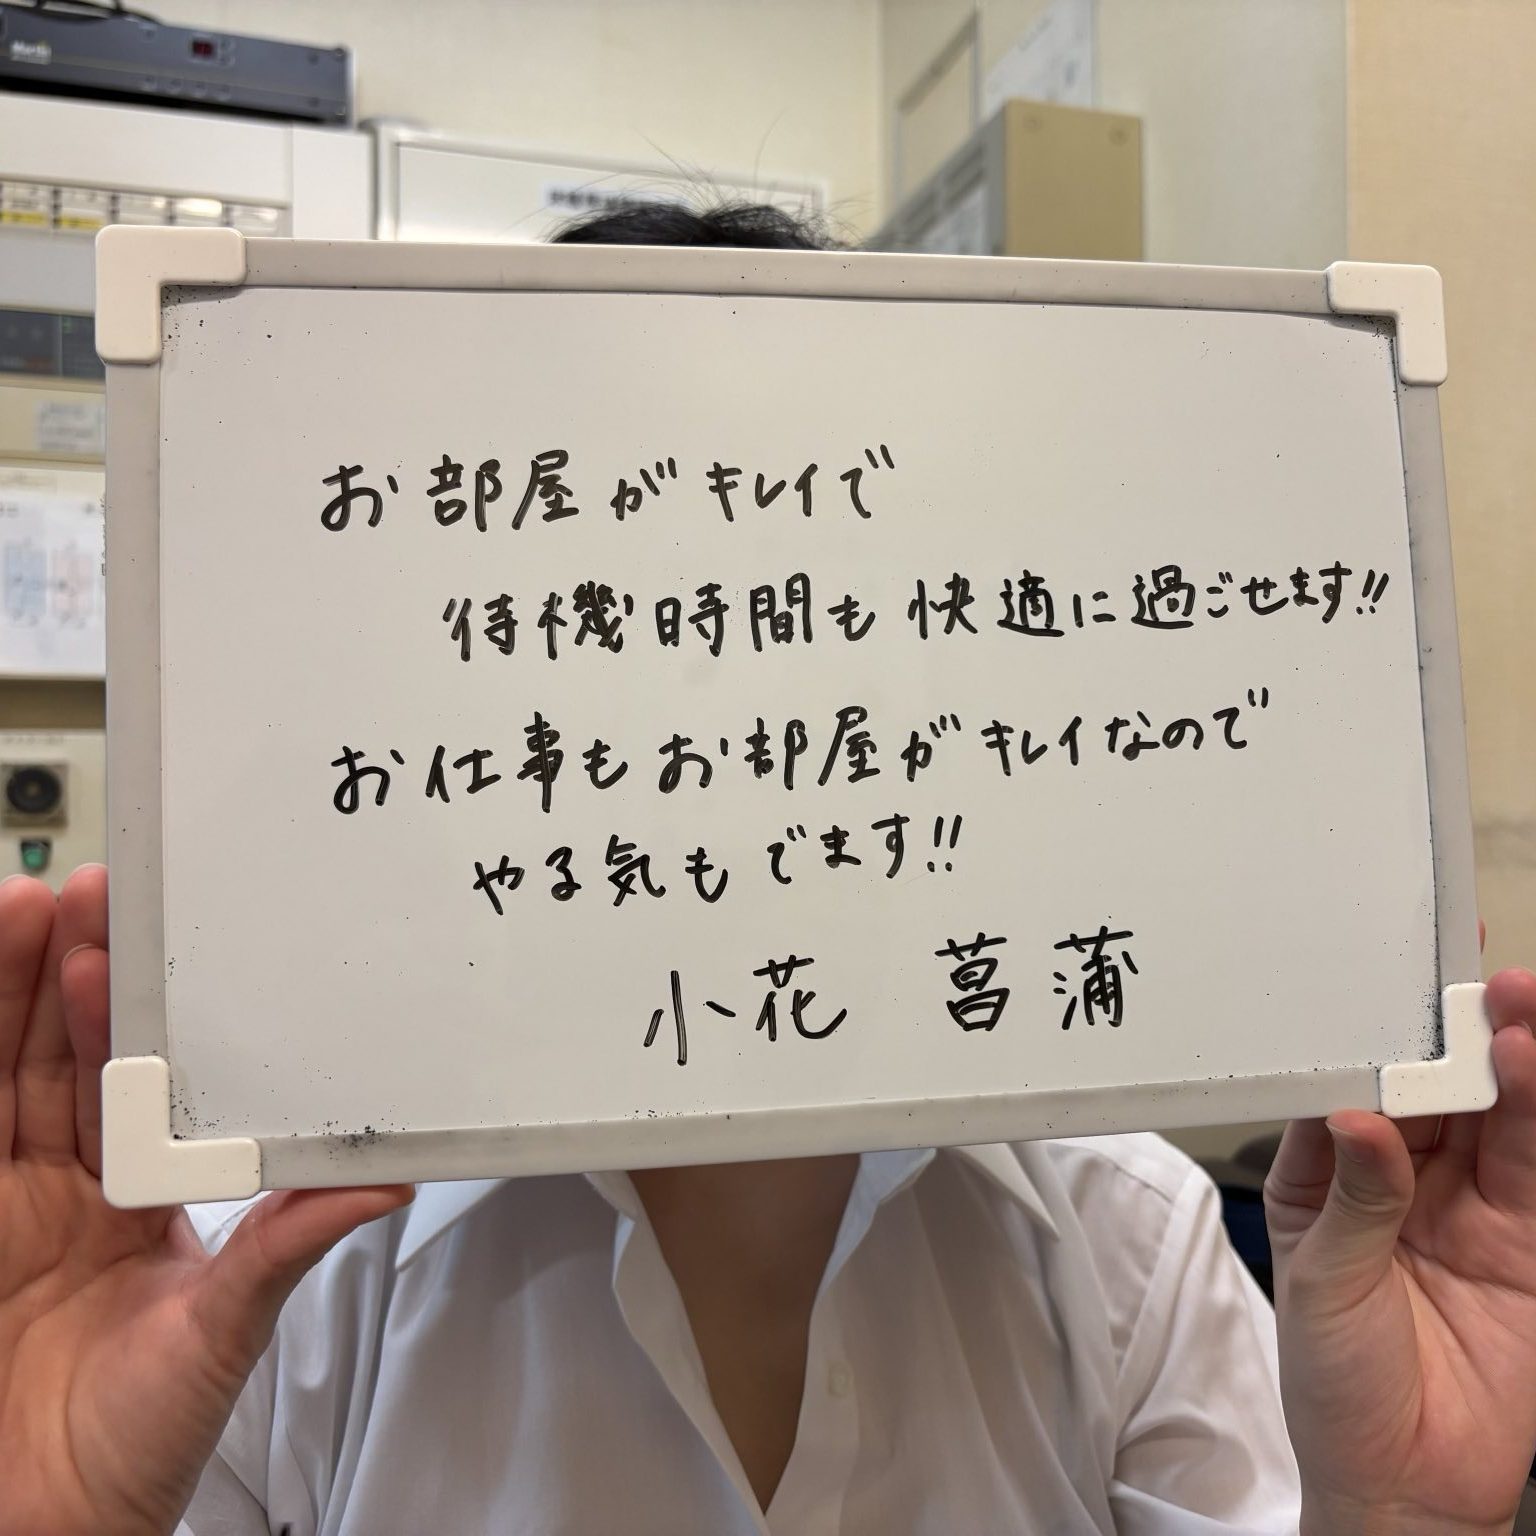 お部屋がキレイで
待機時間も快適に過ごせます!!
お仕事もお部屋がキレイなので
やる気もでます!!
小花 菖蒲